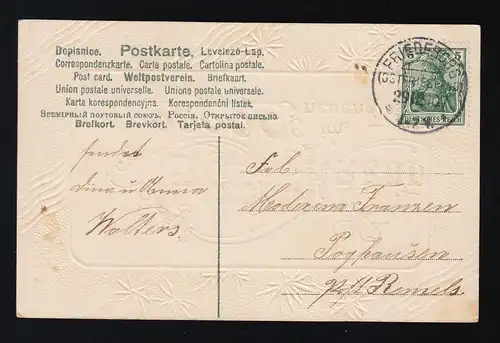 Dopisnice. Postkarte. Levelező-Lap.
Correspondenzkarte. Carte postale. Cartolina postale.
Post card. Weltpostverein. Briefkaart.
Union postale universelle. Unione postale universale.
Karta korespondencyjna. Korespondenční lístek.
Всемірный почтовый союзъ. Россія. Открытое письмо.
Brefkort. Brevkort. Tarjeta postal.
FRIEDEBURG
DEUTSCHES REICH
sendet
Wolters
Frl.
Poghausen
p/st Remels